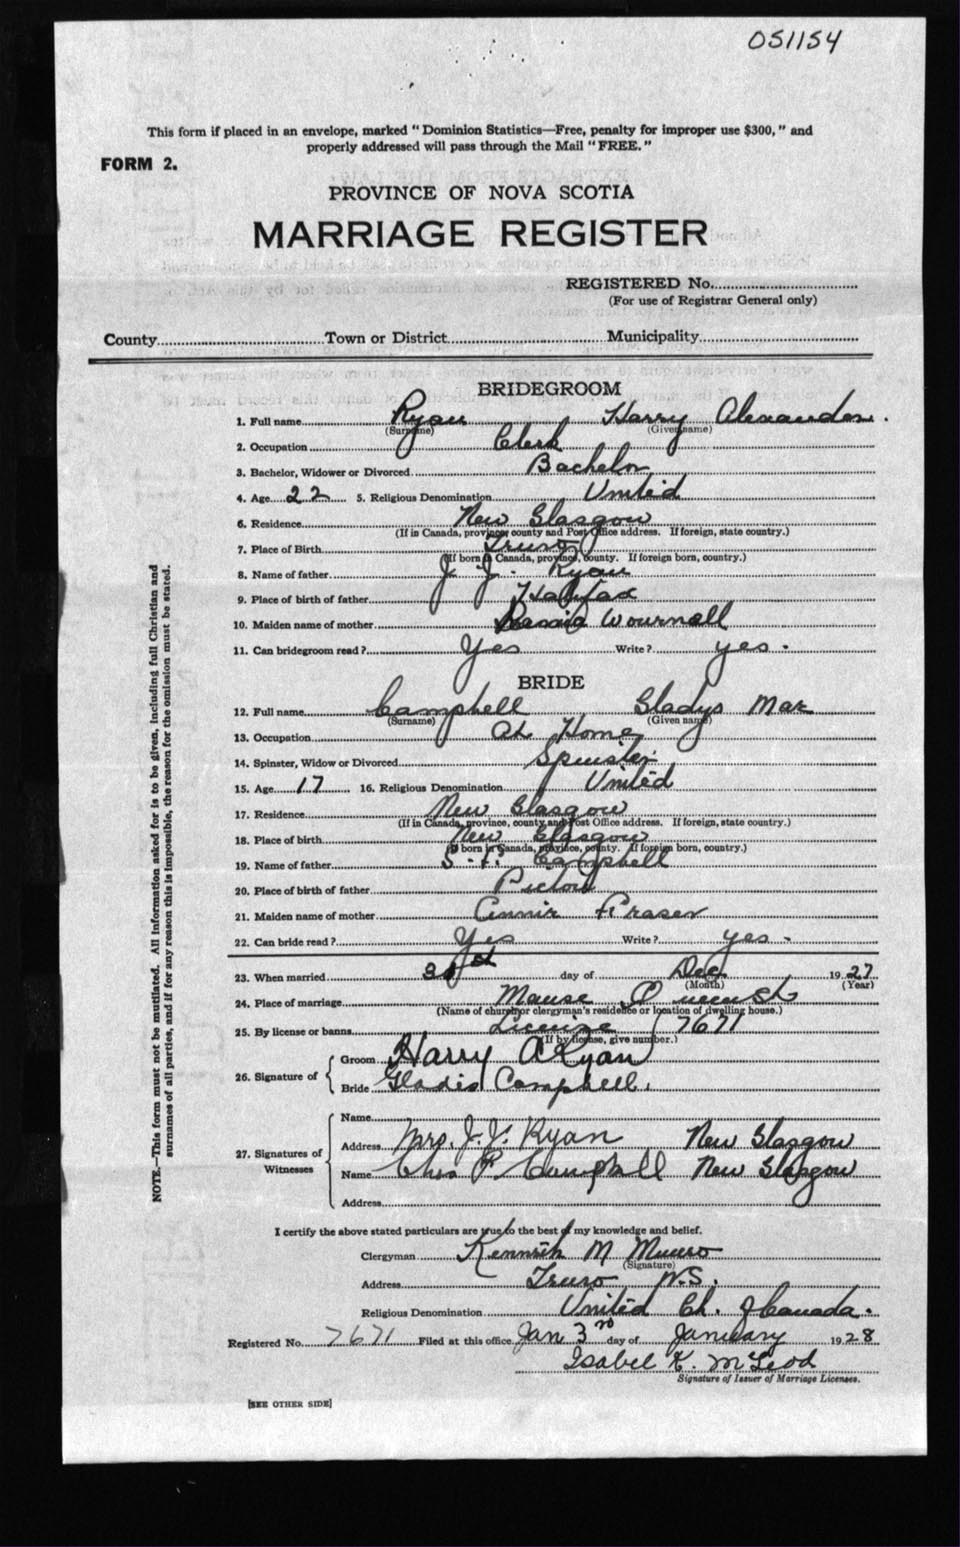 051154
This form if placed in an envelope, marked "Dominion Statistics—Free, penalty for improper use $300," and
properly addressed will pass through the Mail "FREE."
FORM 2.
PROVINCE OF NOVA SCOTIA
MARRIAGE REGISTER
REGISTERED No.
(For use of Registrar General only)
County Town or District Municipality
BRIDEGROOM
1. Full name Ryan Harry Alexander.
(Surname) (Given name)
2. Occupation Clerk
3. Bachelor, Widower or Divorced Bachelor
4. Age 22 5. Religious Denomination United
6. Residence New Glasgow
(If in Canada, province, county and Post Office address. If foreign, state country.)
7. Place of Birth Truro
(If born in Canada, province, county. If foreign born, country.)
8. Name of father J. J. Ryan
9. Place of birth of father Halifax
10. Maiden name of mother Wournell
11. Can bridegroom read? Yes Write? yes.
BRIDE
12. Full name Campbell Gladys Mae
(Surname) (Given name)
13. Occupation At Home
14. Spinster, Widow or Divorced Spinster
15. Age 17 16. Religious Denomination United
17. Residence New Glasgow
(If in Canada, province, county and Post Office address. If foreign, state country.)
18. Place of birth New Glasgow
(If born in Canada, province, county. If foreign born, country.)
19. Name of father Campbell
20. Place of birth of father Pictou
21. Maiden name of mother Annie Fraser
22. Can bride read? Yes Write? yes.
23. When married day of Dec 1927
(Month) (Year)
24. Place of marriage Manse
(Name of church or clergyman's residence or location of dwelling house.)
25. By license or banns License 7671
(If by license, give number.)
26. Signature of Groom Harry A Ryan
Bride Gladis Campbell.
27. Signatures of Witnesses
Name
Address Mrs. J. J. Ryan New Glasgow
Name Chas P. Campbell New Glasgow
Address
I certify the above stated particulars are true to the best of my knowledge and belief.
Clergyman Kenneth M Munro
(Signature)
Address Truro N.S.
Religious Denomination United Ch. of Canada.
Registered No. 7671 Filed at this office Jan 3rd day of January 1928
Isabel K. McLeod
Signature of Issuer of Marriage Licenses.
[SEE OTHER SIDE]
NOTE.—This form must not be mutilated. All information asked for is to be given, including full Christian and
surnames of all parties, and if for any reason this is impossible, the reason for the omission must be stated.